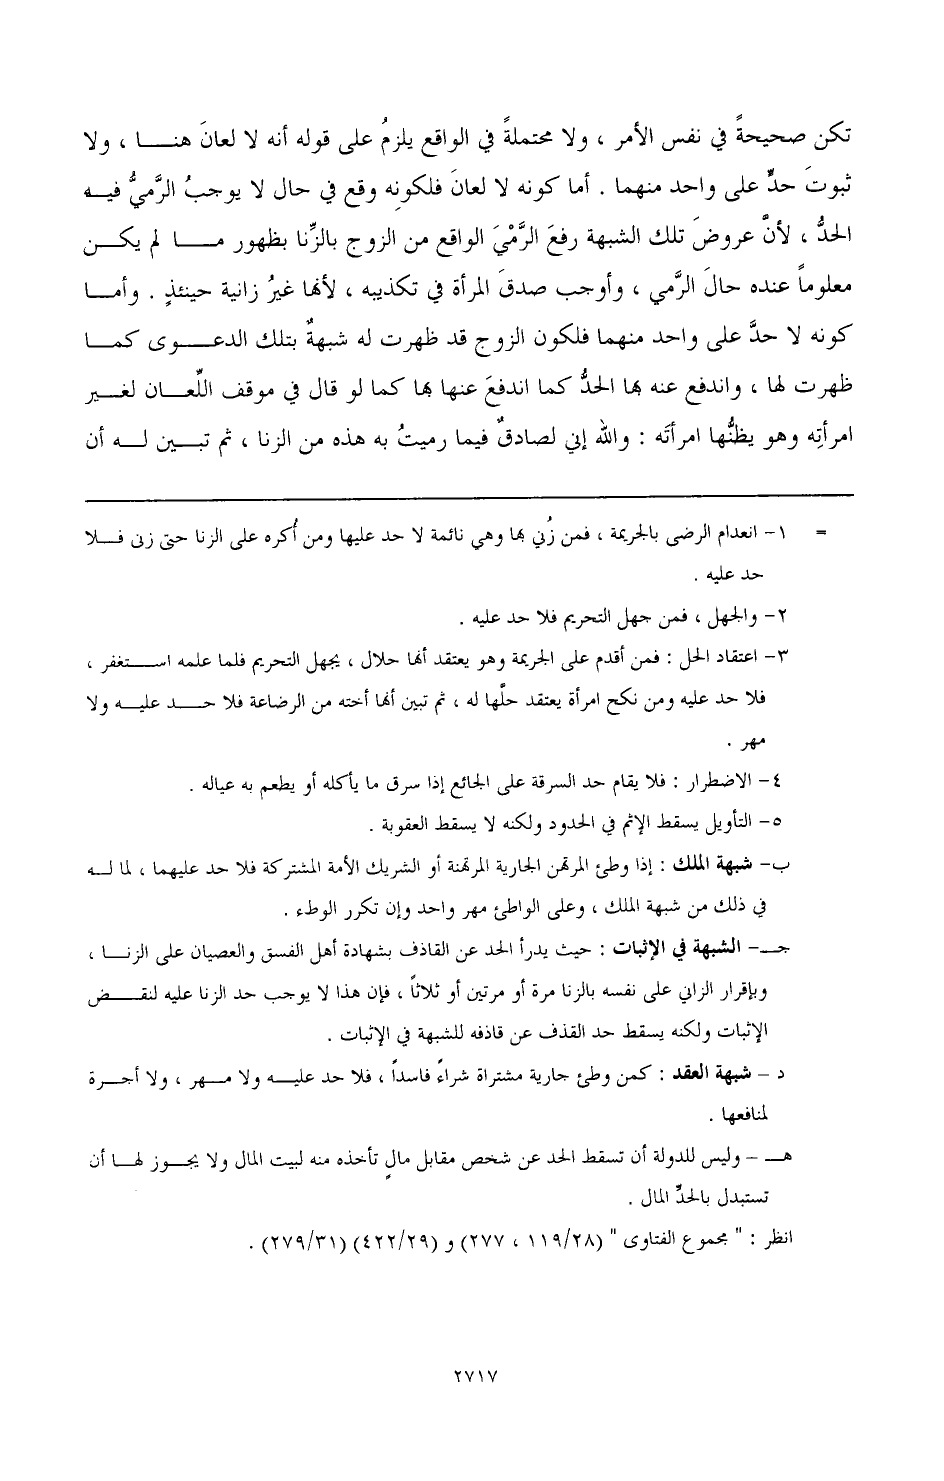 تكن صحيحةً في نفس الأمر ، ولا محتملةً في الواقع يلزمُ على قوله أنه لا لعانَ هنـــا ، ولا
ثبوتَ حدٍّ على واحد منهما . أما كونه لا لعانَ فلكونِه وقع في حال لا يوجبُ الرَّميُّ فيـه
الحدُّ ، لأنَّ عروضَ تلك الشبهة رفعَ الرَّمْيَ الواقع من الزوج بالزِّنا بظهور مـــا لم يكـن
معلوماً عنده حالَ الرَّمي ، وأوجب صدقَ المرأة في تكذيبه ، لأنها غيرُ زانية حينئذٍ . وأمـا
كونه لا حدَّ على واحد منهما فلكون الزوج قد ظهرت له شبهةٌ بتلك الدعــوى كمـا
ظهرت لها ، واندفع عنه بها الحدُّ كما اندفعَ عنها بها كما لو قال في موقف اللِّعــان لغـير
امرأتِه وهو يظنُّها امرأتَه : والله إني لصادقٌ فيما رميتُ به هذه من الزنا ، ثم تبـين لـه أن
= ١- انعدام الرضى بالجريمة ، فمن زُني بها وهي نائمة لا حد عليها ومن أُكره على الزنا حتى زنى فـلا
حد عليه .
٢- والجهل ، فمن جهل التحريم فلا حد عليه .
٣- اعتقاد الحل : فمن أقدم على الجريمة وهو يعتقد أنها حلال ، يجهل التحريم فلما علمه اسـتغفر ،
فلا حد عليه ومن نكح امرأة يعتقد حلَّها له ، ثم تبين أنها أخته من الرضاعة فلا حـد عليـه ولا
مهر .
٤- الاضطرار : فلا يقام حد السرقة على الجائع إذا سرق ما يأكله أو يطعم به عياله .
٥- التأويل يسقط الإثم في الحدود ولكنه لا يسقط العقوبة .
ب- شبهة الملك : إذا وطئ المرتهن الجارية المرتهنة أو الشريك الأمة المشتركة فلا حد عليهما ، لما لـه
في ذلك من شبهة الملك ، وعلى الواطئ مهر واحد وإن تكرر الوطء .
جـ- الشبهة في الإثبات : حيث يدرأ الحد عن القاذف بشهادة أهل الفسق والعصيان على الزنـا ،
وبإقرار الزاني على نفسه بالزنا مرة أو مرتين أو ثلاثاً ، فإن هذا لا يوجب حد الزنا عليه لنقـض
الإثبات ولكنه يسقط حد القذف عن قاذفه للشبهة في الإثبات .
د – شبهة العقد : كمن وطئ جارية مشتراة شراءً فاسداً ، فلا حد عليـه ولا مـهر ، ولا أجـرة
لمنافعها .
هـ – وليس للدولة أن تسقط الحد عن شخص مقابل مالٍ تأخذه منه لبيت المال ولا يجـوز لهـا أن
تستبدل بالحدِّ المال .
انظر : " مجموع الفتاوى " (١١٩/٢٨ ، ٢٧٧) و (٤٢٢/٢٩) (٢٧٩/٣١) .
٢٧١٧